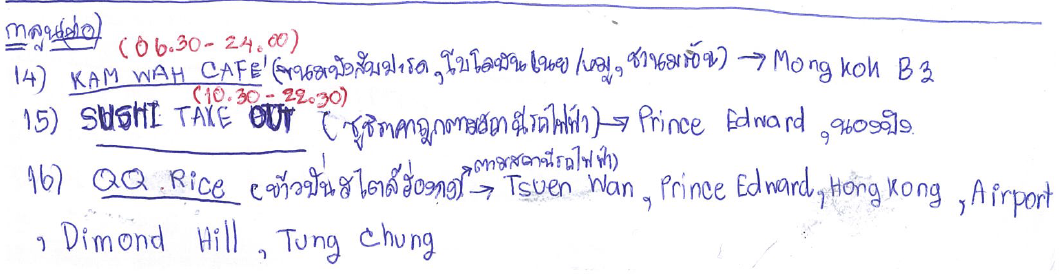 กาลูน(ต่อ)
(06.30-24.00)
14) KAM WAH CAFE' (ขนมปังสับปะรด, โบโลบันเนย/หมู, ชานมร้อน) → Mongkok B3
(10.30-22.30)
15) SUSHI TAKE OUT (ซูชิราคาถูกตามสถานีรถไฟฟ้า) → Prince Edward, นอองปิง
ตามสถานีรถไฟฟ้า)
16) QQ.Rice (ข้าวปั้นสไตล์ฮ่องกง) → Tsuen Wan, Prince Edward, Hong Kong, Airport
, Dimond Hill, Tung Chung